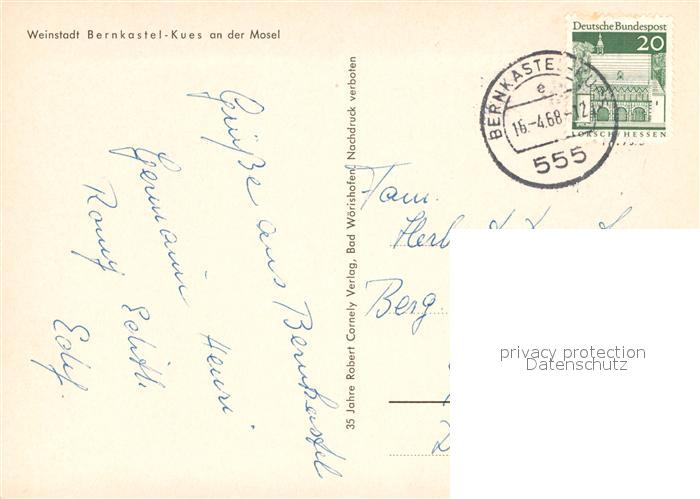 Weinstadt Bernkastel-Kues an der Mosel
Grüße aus Bernkastel
Germain Henri
Romy Edith
Edy.
35 Jahre Robert Cornely Verlag, Bad Wörishofen, Nachdruck verboten
Deutsche Bundespost
20
LORSCH/HESSEN
BERNKASTEL-KUES
e
16.-4.68-12
555
Fam.
Berg.
privacy protection
Datenschutz